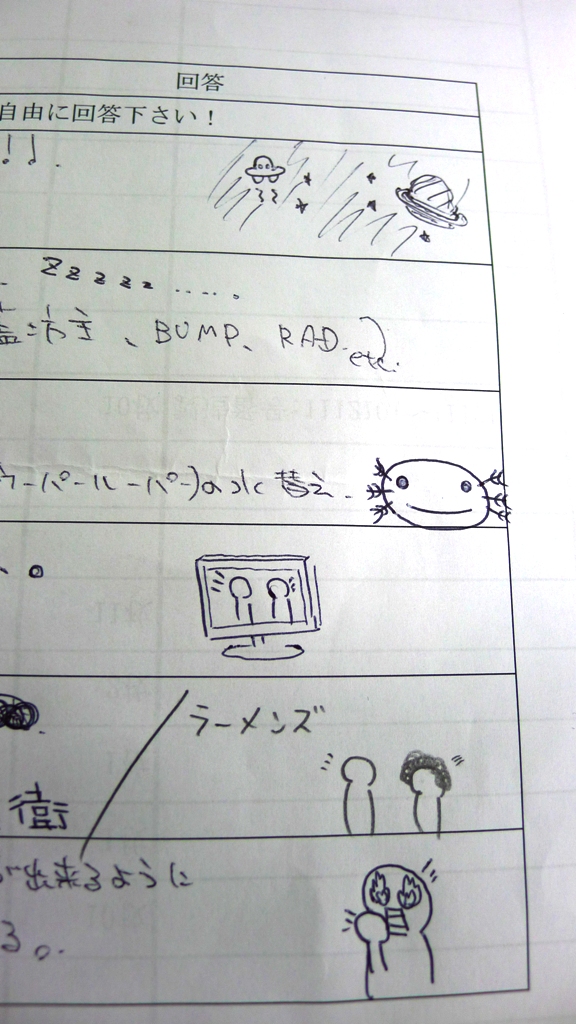 回答
自由に回答下さい！
!!.
Zzzzz.....。
、BUMP、RAD.)
etc.
ーパールーパー)の水替え.
、。
ラーメンズ
衛
出来るように
る。